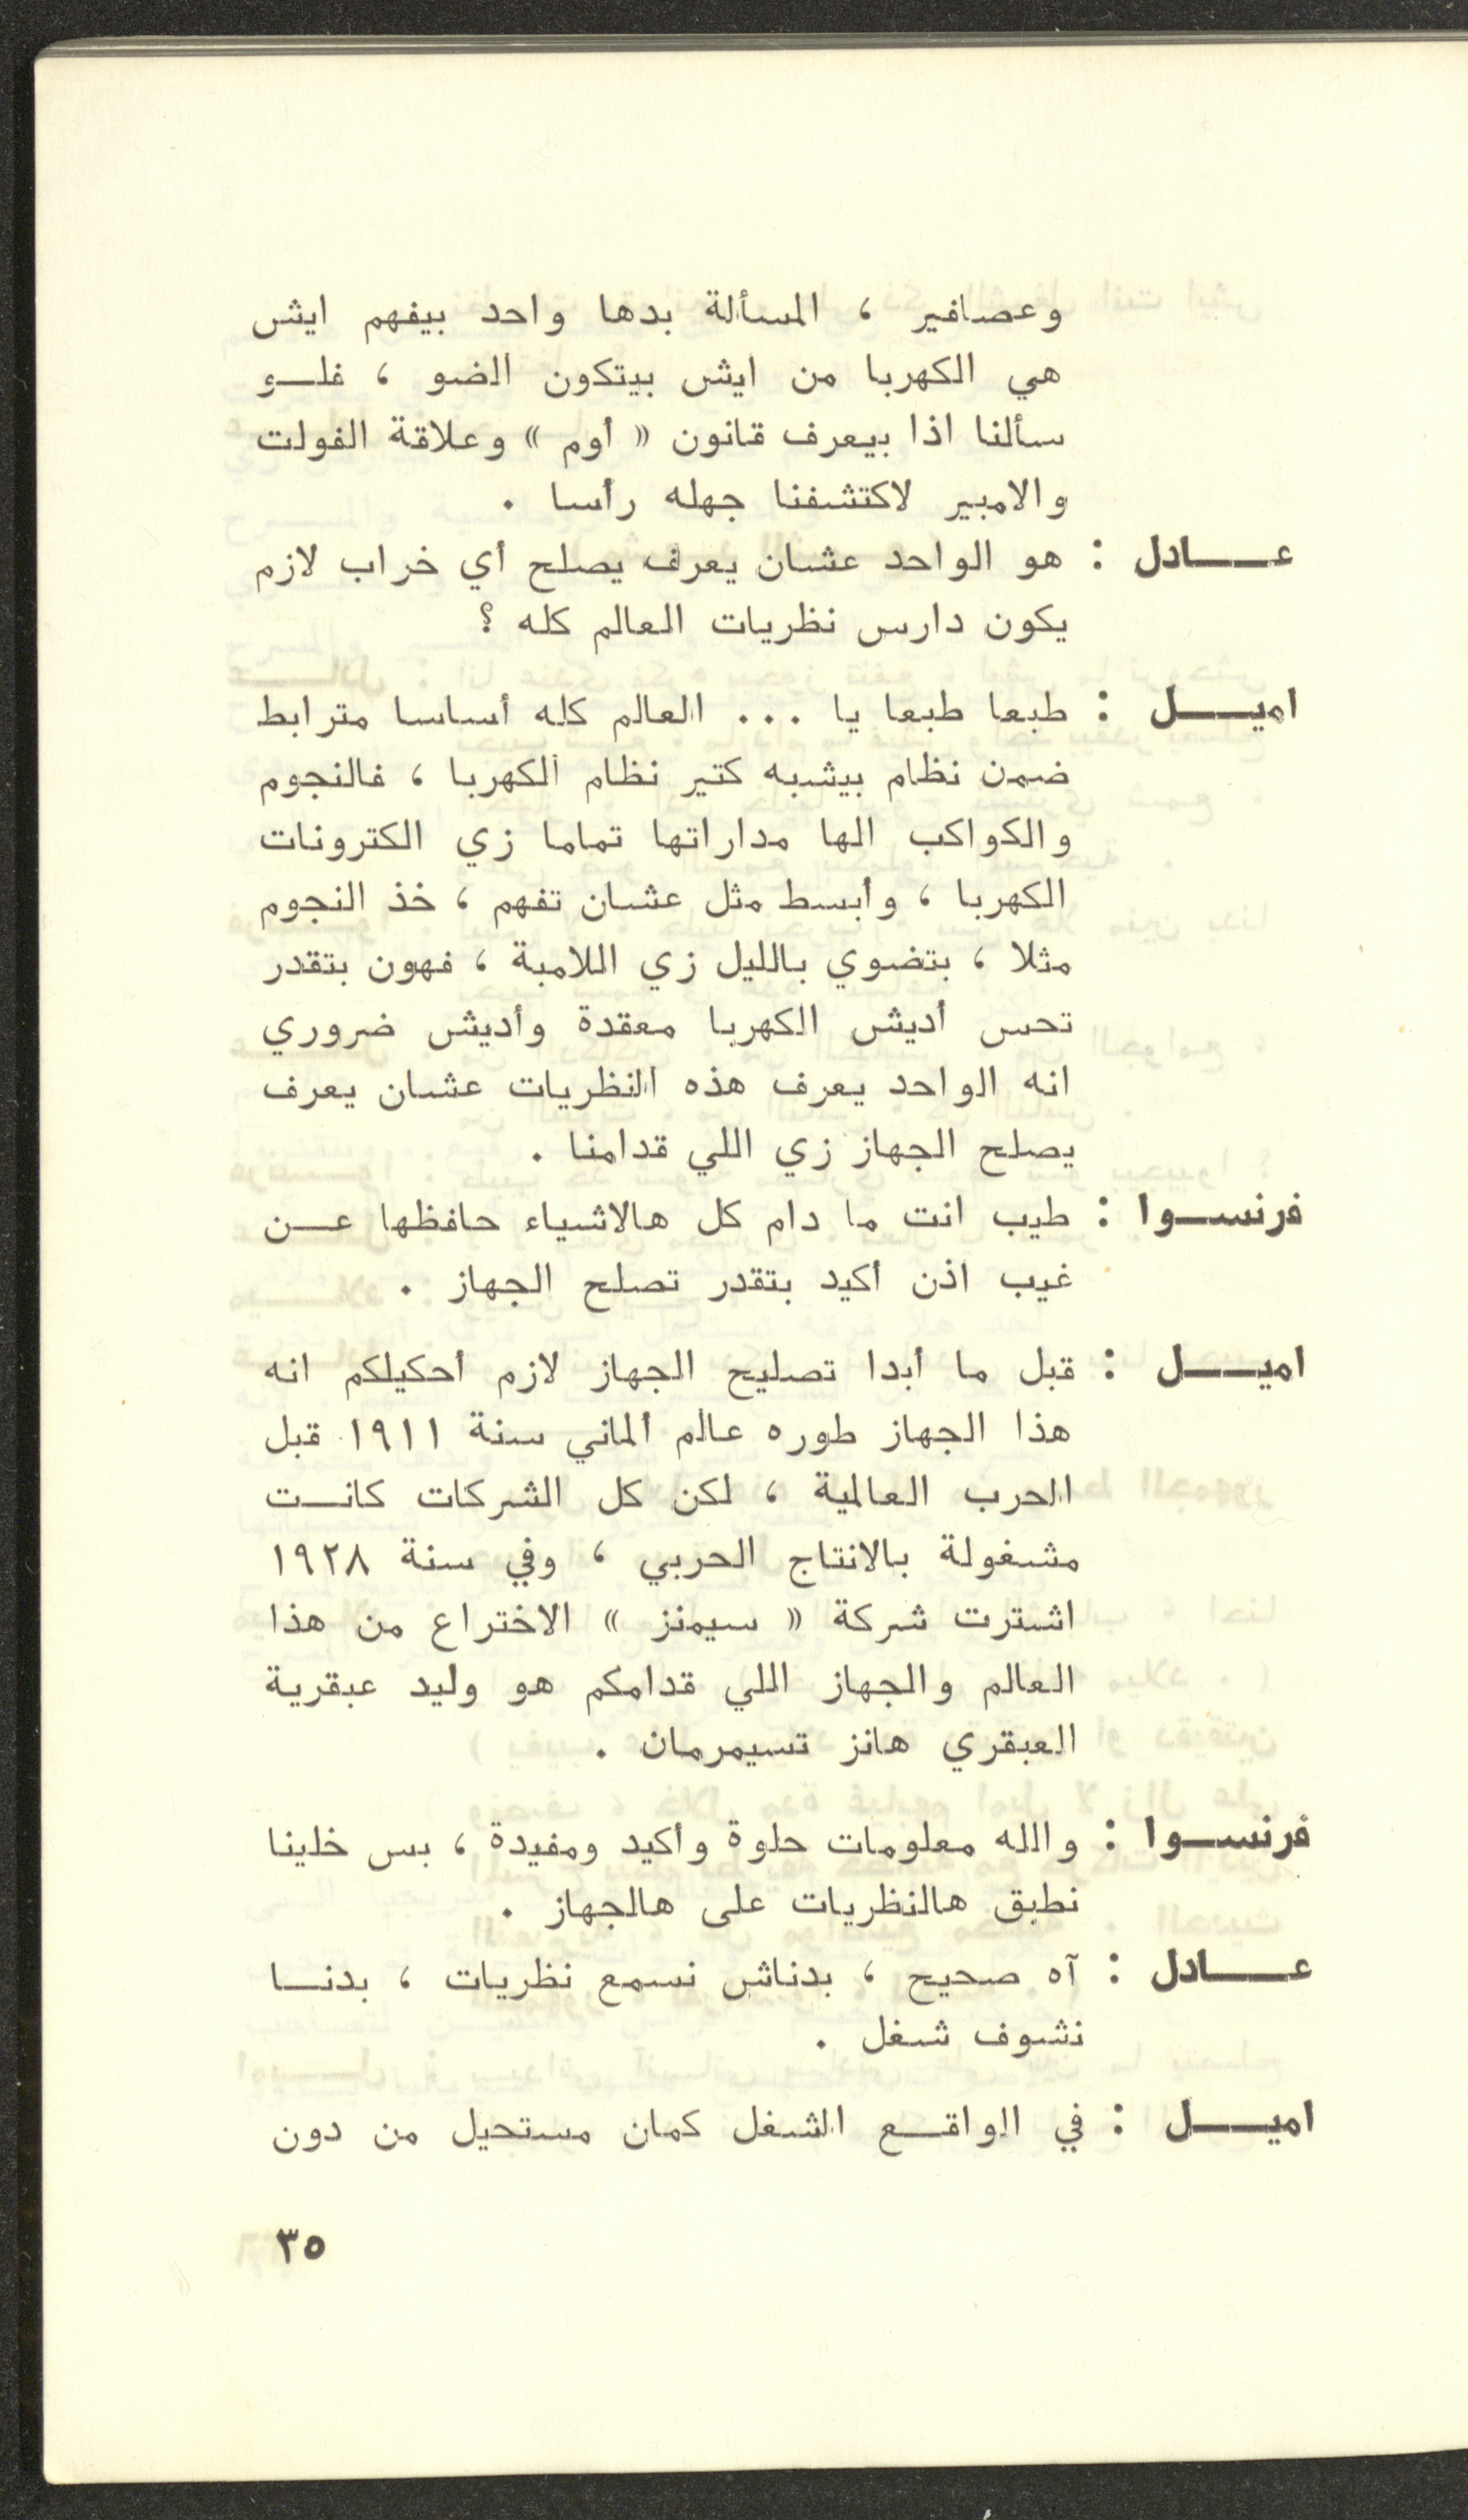 وعصافير ، المسألة بدها واحد بيفهم ايش
هي الكهربا من ايش بيتكون الضو ، فلو
سألنا اذا بيعرف قانون « أوم » وعلاقة الفولت
والامبير لاكتشفنا جهله رأسا .
عادل : هو الواحد عشان يعرف يصلح أي خراب لازم
يكون دارس نظريات العالم كله ؟
اميل : طبعا طبعا يا ... العالم كله أساسا مترابط
ضمن نظام بيشبه كتير نظام الكهربا ، فالنجوم
والكواكب الها مداراتها تماما زي الكترونات
الكهربا ، وأبسط مثل عشان تفهم ، خذ النجوم
مثلا ، بتضوي بالليل زي اللامبة ، فهون بتقدر
تحس أديش الكهربا معقدة وأديش ضروري
انه الواحد يعرف هذه النظريات عشان يعرف
يصلح الجهاز زي اللي قدامنا .
فرنسوا : طيب انت ما دام كل هالاشياء حافظها عن
غيب اذن أكيد بتقدر تصلح الجهاز .
اميل : قبل ما أبدا تصليح الجهاز لازم أحكيلكم انه
هذا الجهاز طوره عالم ألماني سنة ١٩١١ قبل
الحرب العالمية ، لكن كل الشركات كانت
مشغولة بالانتاج الحربي ، وفي سنة ١٩٢٨
اشترت شركة « سيمنز » الاختراع من هذا
العالم والجهاز اللي قدامكم هو وليد عبقرية
العبقري هانز تسيمرمان .
فرنسوا : والله معلومات حلوة وأكيد ومفيدة ، بس خلينا
نطبق هالنظريات على هالجهاز .
عادل : آه صحيح ، بدناش نسمع نظريات ، بدنا
نشوف شغل .
اميل : في الواقع الشغل كمان مستحيل من دون
٣٥